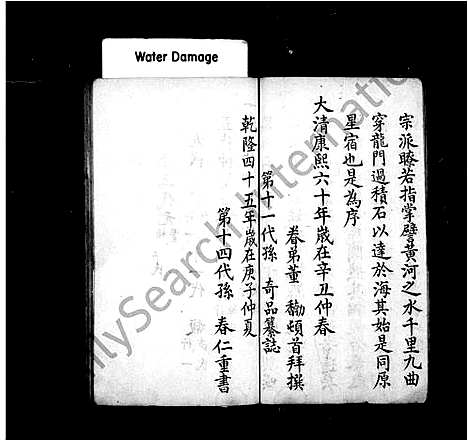 Water Damage
宗派瞭若指掌譬黃河之水千里九曲
穿龍門過積石以達於海其始是同原
星宿也是為序
大清康熙六十年歲在辛丑仲春
眷弟董勷頓首拜撰
第十一代孫 奇品纂誌
乾隆四十五年歲在庚子仲夏
第十四代孫 春仁重書
ilySearch International